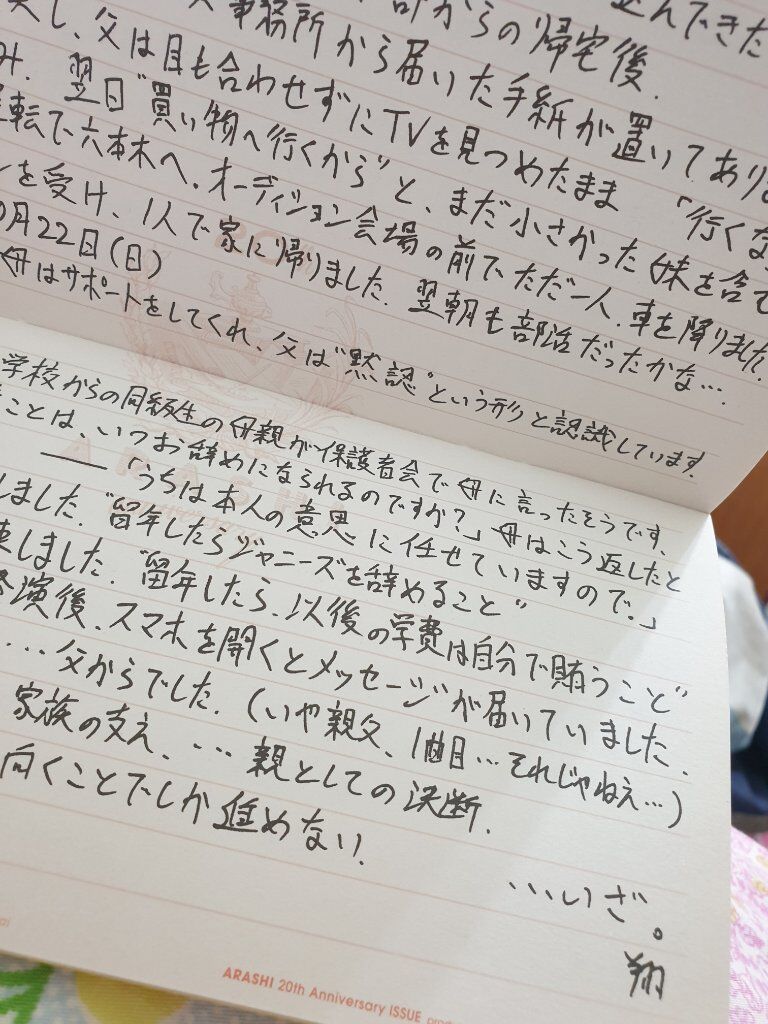 事務所から届いた手紙が置いてありま
からの帰宅後.
し、父は目も合わせずにTVを見つめたまま 「行くな
み. 翌日“買い物へ行くから”と、まだ小さかった妹を含
転で六本木へ. オーディション会場の前でただ一人.車を降りました.
を受け、1人で家に帰りました. 翌朝も部活だったかな….
月22日(日)
母はサポートをしてくれ、父は“黙認”という形りと認識しています.
学校からの同級生の母親が保護者会で母に言ったそうです.
ことは、いつお辞めになられるのですか?」母はこう返したと
――「うちは本人の意思に任せていますので.」
しました.“留年したらジャニーズを辞めること”
束しました.“留年したら、以後の学費は自分で賄うこと”
演後、スマホを開くとメッセージが届いていました.
...父からでした. (いや親父、1曲目…それじゃねえ…)
家族の支え、… 親としての決断.
向くことでしか進めない.
…いざ。
翔
ARASHI
ARASHI 20th Anniversary ISSUE